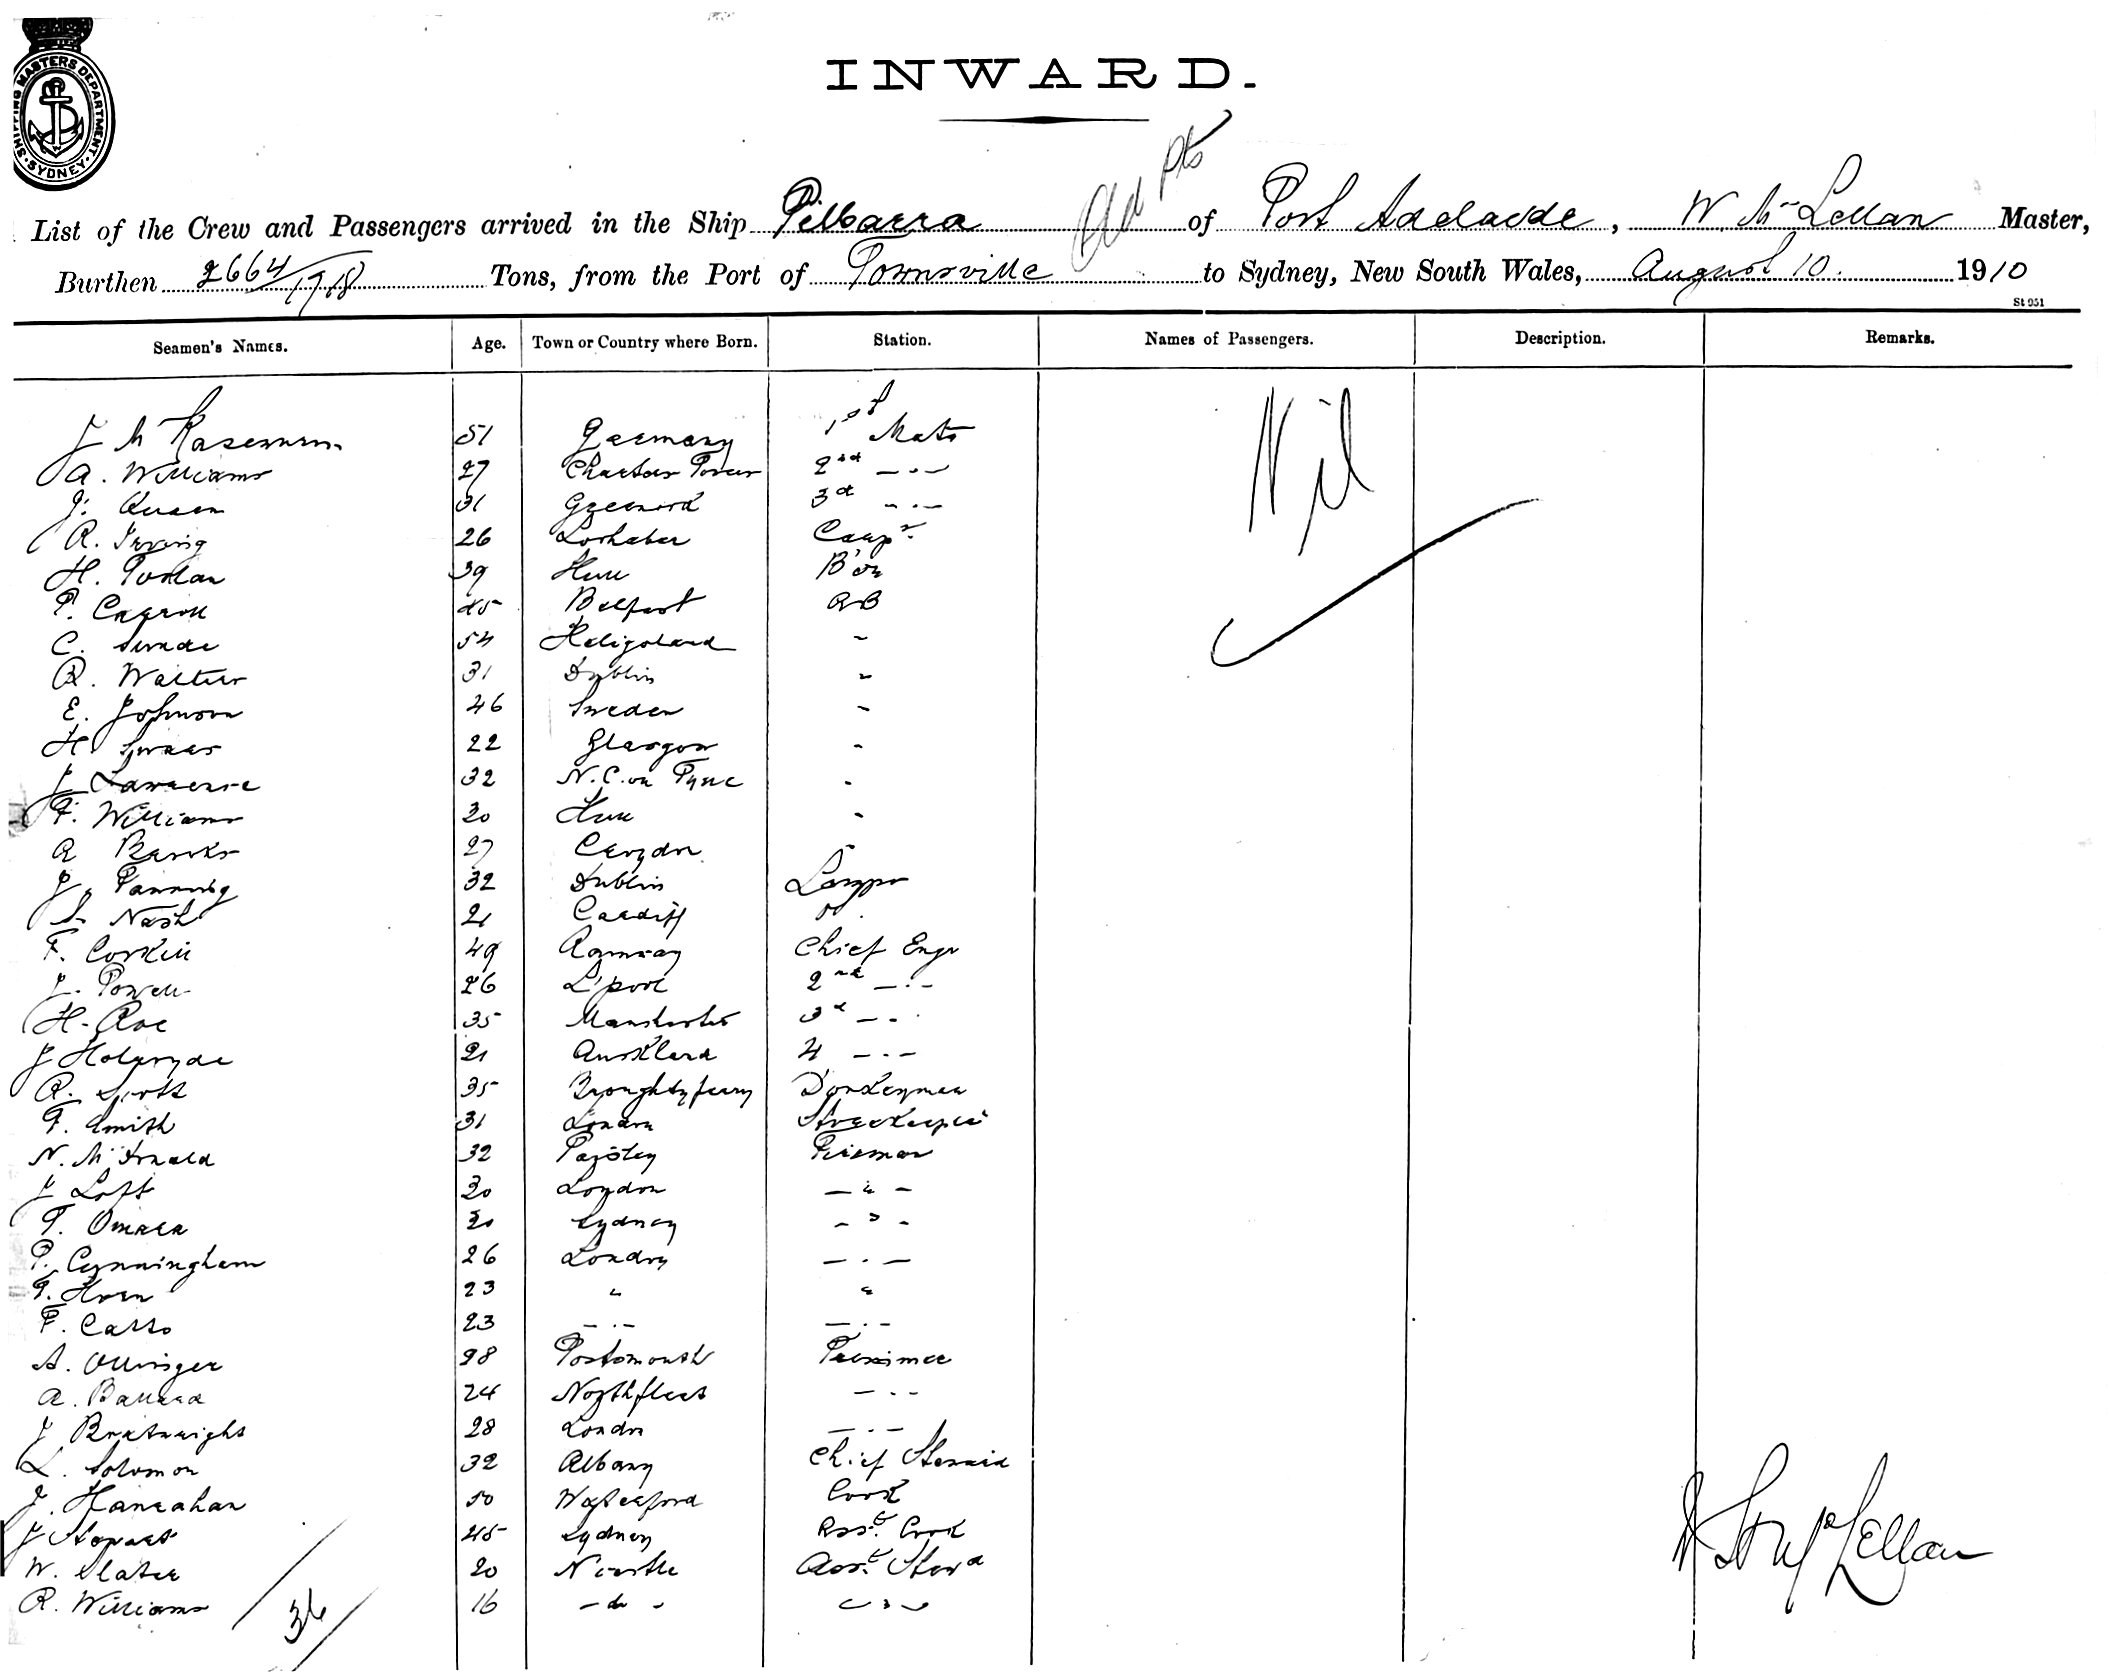 SHIPPING MASTERS DEPARTMENT · SYDNEY ·
INWARD.
Old pts
List of the Crew and Passengers arrived in the Ship Pilbarra of Port Adelaide, W. McLellan Master,
Burthen 2664/1918 Tons, from the Port of Townsville to Sydney, New South Wales, August 10. 1910
St 951
Seamen's Names. Age. Town or Country where Born. Station. Names of Passengers. Description. Remarks.
51 Germany 1st Mate Nil
A. Williams 27 Charters Towers 2nd — " —
J. 31 Greenock 3rd — " —
R. Irving 26 Lochaber Carp r
H. 39 Hull B'sn
P. Carroll 45 Belfast AB
C. 54 Heligoland "
R. Walter 31 Dublin "
E. Johnson 46 Sweden "
H. 22 Glasgow "
J Lawrence 32 N.C. on Tyne "
F. Williams 20 Hull "
A Banks 27 Croydon "
J. Fanning 32 Dublin Lamps
S. Nash 21 Cardiff OS
F. Corkill 49 Ramsay Chief Engr
J. Powell 26 L'pool 2nd — " —
H. Roe 35 Manchester 3d — "
J Holgryde 21 Auckland 4 — " —
R. Scott 35 Broughty ferry Donkeyman
F. Smith 31 London Storekeeper
N. McDonald 32 Paisley Fireman
J Loft 30 London — " —
T. Omara 20 Sydney — " —
P. Cunningham 26 London — " —
T. 23 " "
F. Casso 23 — " — — " —
A. Ollinger 28 Portsmouth Trimmer
A. Ballard 24 Northfleet — " —
J Boatwright 28 London — " —
L. Solomon 32 Albany Chief Steward
J. Hanrahan 50 Waterford Cook
J 45 Sydney Asst. Cook
W. Slater 20 N'castle Asst. Stewd
R. Williams 16 — do — " " "
36
McLellan